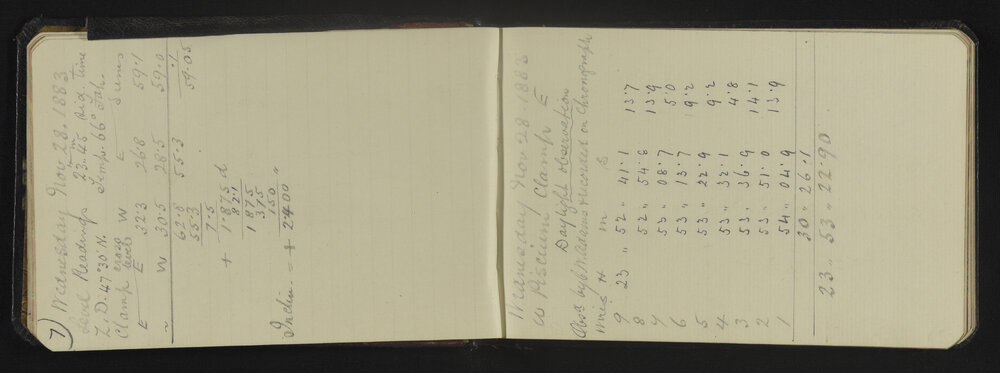 7)
Wednesday Nov 28. 1883
Level Readings 23h-45m Sid. time
Z.D. 47°30' N. Temp. 66° Fah.
Clamp cross levels
E W E Sums
E 32.3 26.8 59.1
W 30.5 28.5 59.0
62.8 55.3 .1
55.3 59.05
7.5
+ 1.875 d
82.1
1875
375
150
Inclin. = + 2.400 "
Wednesday Nov 28. 1883
ω Piscium Clamp E
Daylight observation
Obsd by C.W. Adams & recorded on Chronograph
Wires H m s
9 23 " 52 " 41.1 13.7
8 52 " 54.8 13.9
7 53 " 08.7 5.0
6 53 " 13.7 9.2
5 53 " 22.9 9.2
4 53 " 32.1 4.8
3 53 " 36.9 14.1
2 53 " 51.0 13.9
1 54 " 04.9
30 " 26.1
23 " 53 " 22.90